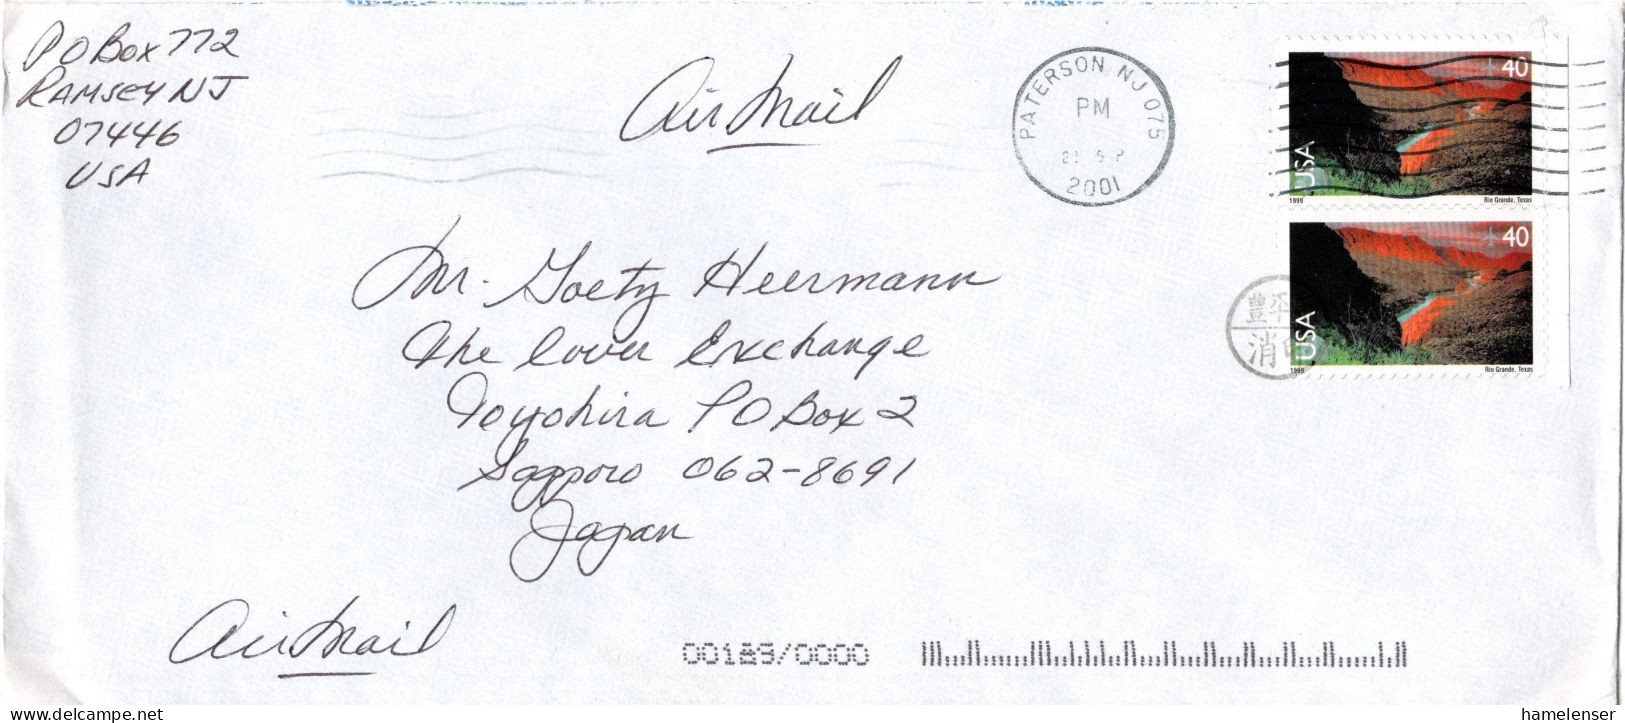 PO Box 772
RAMSEY NJ
07446
USA
Air Mail
PATERSON NJ 075
PM
2001
40
USA
1999 Rio Grande, Texas
40
USA
1999 Rio Grande, Texas
豊平
消印
Mr. Goetz Heermann
The Cover Exchange
Toyohira PO Box 2
Sapporo 062-8691
Japan
Air Mail
00189/0000
www.delcampe.net
hamelenser